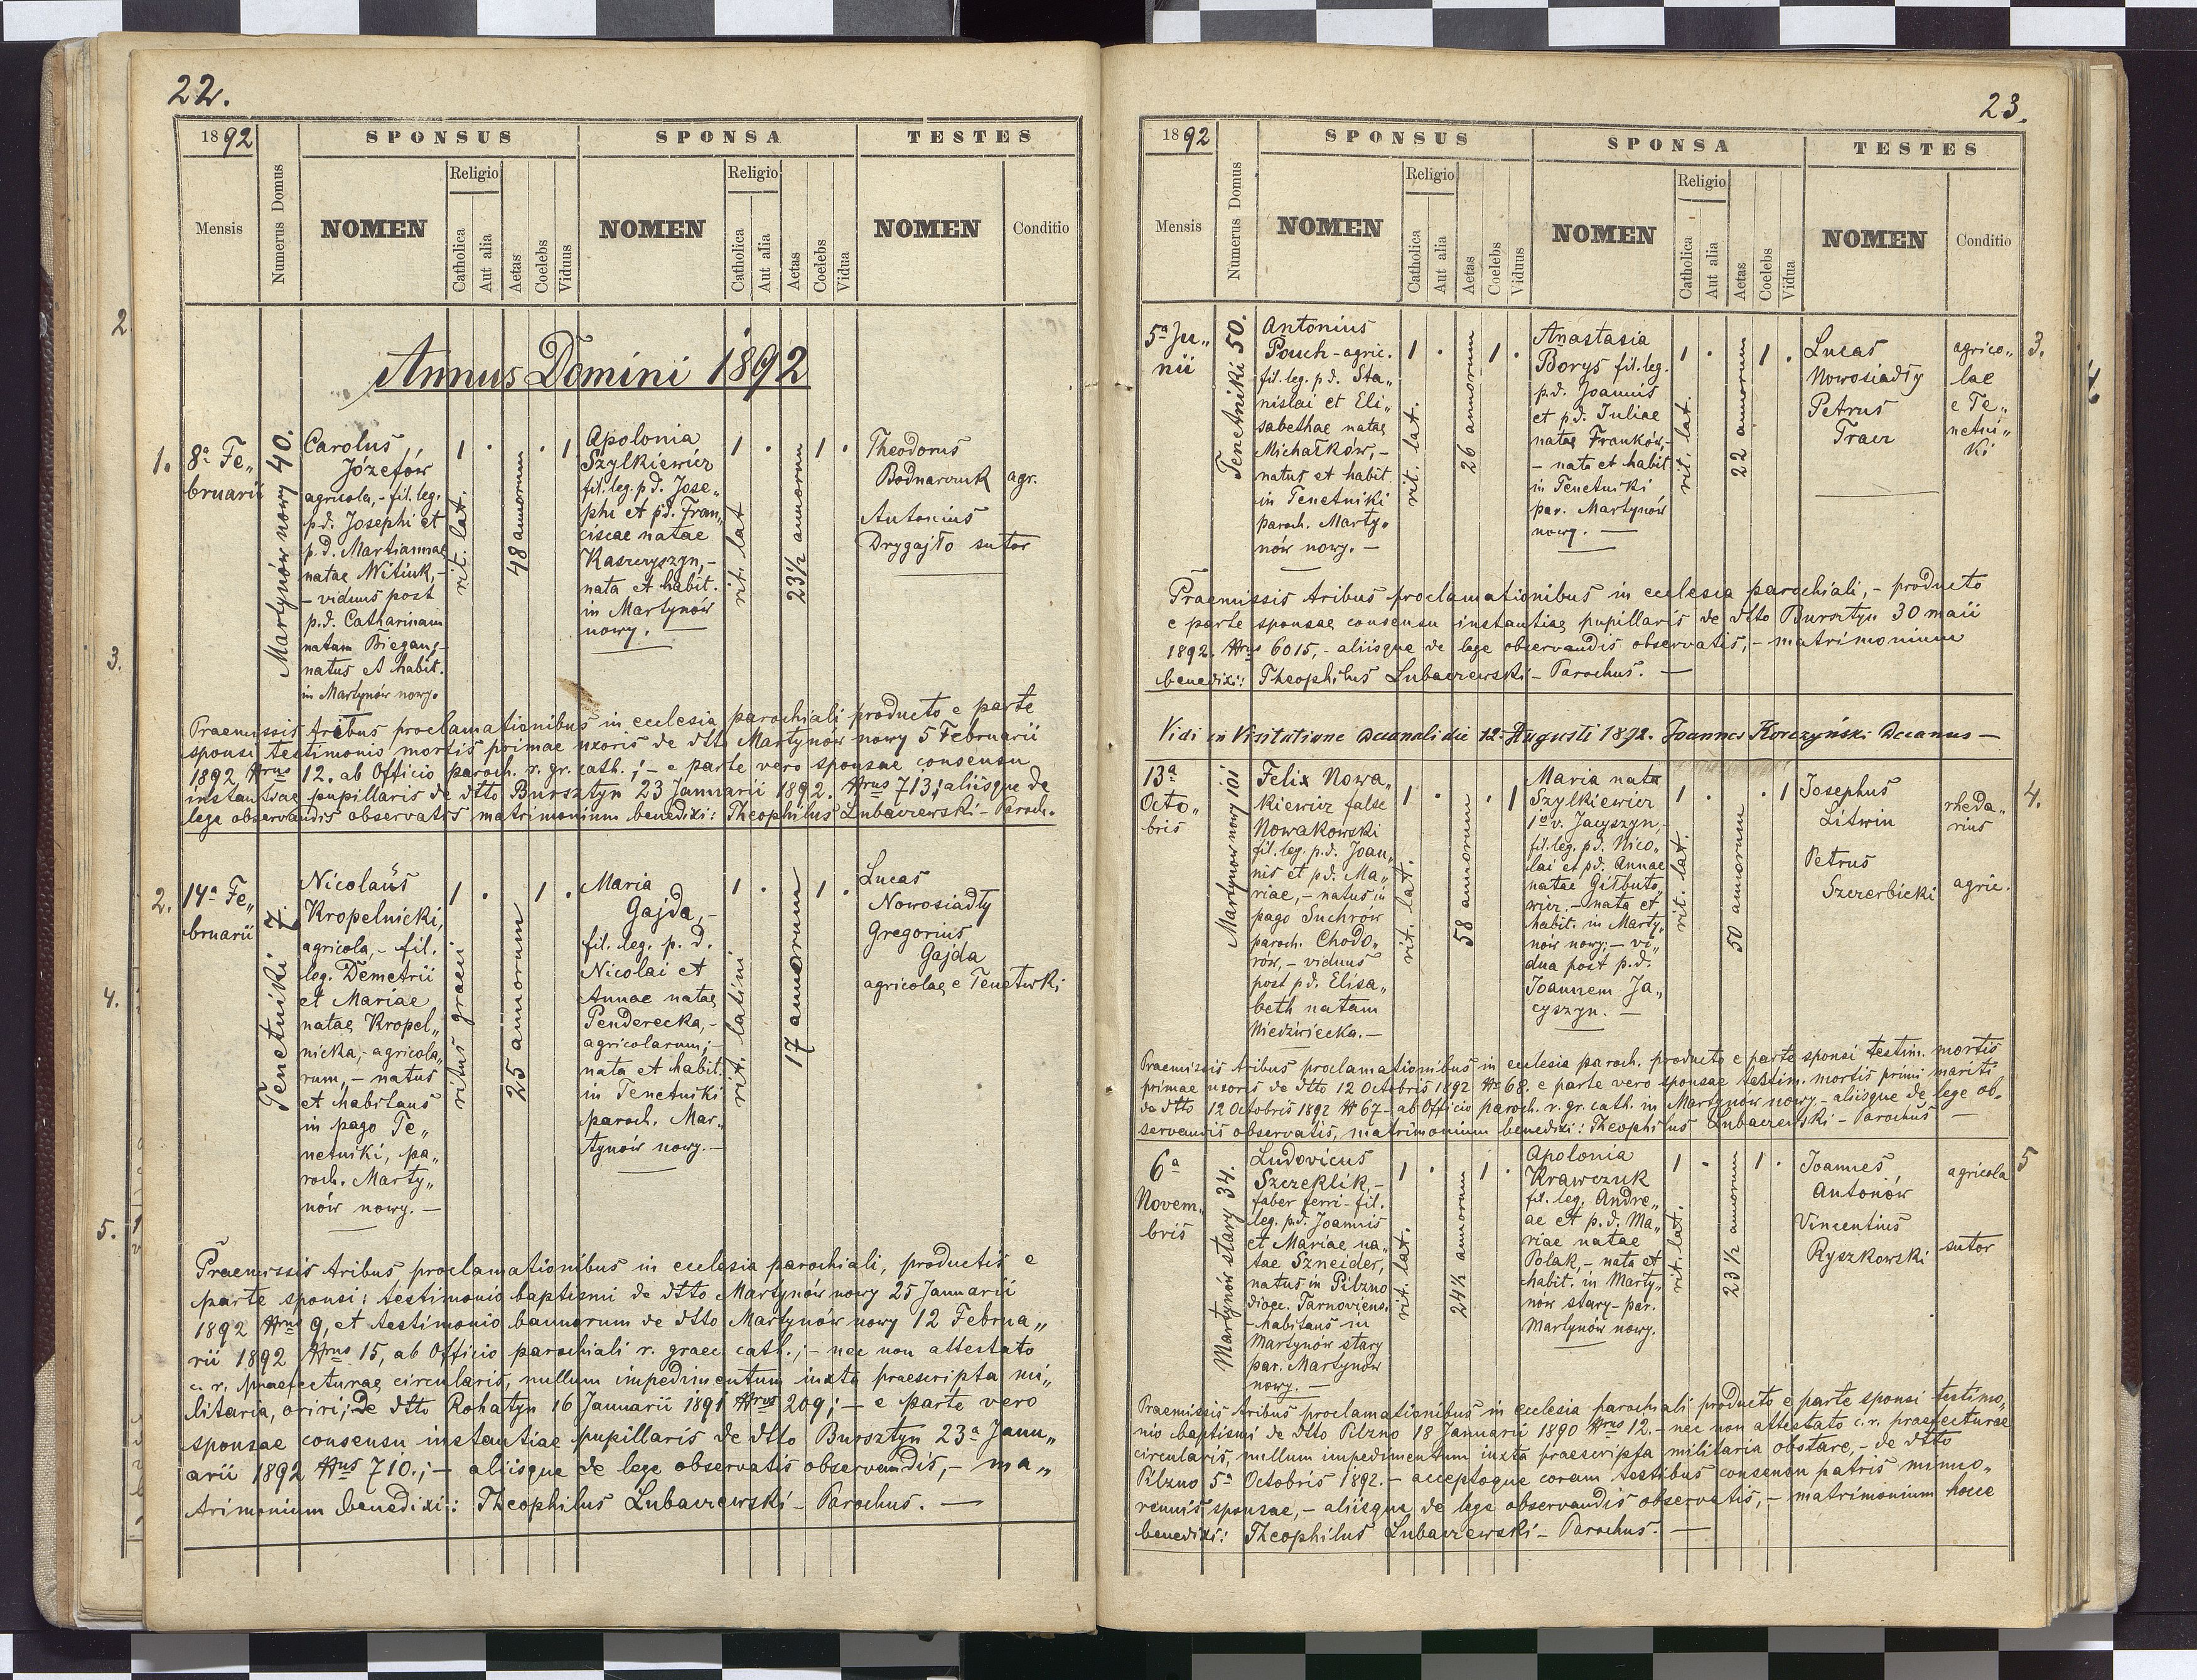 22.
1892
SPONSUS
SPONSA
TESTES
Mensis
Numerus Domus
NOMEN
Religio
Catholica
Aut alia
Aetas
Coelebs
Viduus
NOMEN
Religio
Catholica
Aut alia
Aetas
Coelebs
Vidua
NOMEN
Conditio
Annus Domini 1892
1.
8ª Fe„
bruarii
Martynów nowy 40.
Carolus
Józefów
agricola, - fil. leg.
p.d. Josephi et
p.d. Mariannae
natae Witiuk, -
- viduus post
p.d. Catharinam
natam Biegan; -
natus et habit.
in Martynów nowy.
1 · · 1
rit. lat.
48 annorum
Apolonia
Szylkiewicz
fil. leg. p d. Jose„
phi et pd. Fran„
ciscae natae
Kaszczyszyn, -
nata et habit.
in Martynów
nowy. —
1 · 1 ·
rit. lat
23½ annorum
Theodorus
Bodnarczuk agr.
Antonius
Drygajło sutor
Praemissis tribus proclamationibus in ecclesia parochiali producto e parte
sponsi testimonio mortis primae uxoris de dtto Martynów nowy 5 Februarii
1892 Nrus 12. ab Officio paroch. r. gr. cath.; - e parte vero sponsae consensu
instantiae pupillaris de dtto Bursztyn 23 Januarii 1892. Nrus 713; aliisque de
lege observandis observatis matrimonium benedixi: Theophilus Lubaczewski - Paroch.
2.
14ª Fe„
bruarii
Tenetniki 7.
Nicolaus
Kropelnicki,
agricola, - fil.
leg. Demetrii
et Mariae
natae Kropel„
nicka, - agricola„
rum, - natus
et habitans
in pago Te„
netniki, pa„
roch. Marty„
nów nowy. —
1 · 1 ·
ritus graeci
25 annorum
Maria
Gajda, -
fil. leg. p. d.
Nicolai et
Annae natae
Penderecka, -
agricolarum; -
nata et habit.
in Tenetniki
paroch. Mar„
tynów nowy. —
1 · 1 ·
rit. latini
17 annorum
Lucas
Nowosiadły
Gregorius
Gajda
agricolae e Tenetniki
Praemissis tribus proclamationibus in ecclesia parochiali, productis e
parte sponsi: testimonio baptismi de dtto Martynów nowy 25 Januarii
1892 Nrus 9, et testimonio bannorum de dtto Martynów nowy 12 Februa„
rii 1892 Nrus 15, ab Officio parochiali r. graec. cath.; - nec non attestato
c. r. praefecturae circularis, nullum impedimentum iuxta praescripta mi„
litaria, oriri; de dtto Rohatyn 16 Januarii 1891 Nrus 209; - e parte vero
sponsae consensu instantiae pupillaris de dtto Bursztyn 23ª Janu„
arii 1892 Nrus 710.; - aliisque de lege observatis observandis, - ma„
trimonium benedixi: Theophilus Lubaczewski - Parochus. —
23.
1892
SPONSUS
SPONSA
TESTES
Mensis
Numerus Domus
NOMEN
Religio
Catholica
Aut alia
Aetas
Coelebs
Viduus
NOMEN
Religio
Catholica
Aut alia
Aetas
Coelebs
Vidua
NOMEN
Conditio
5ª Ju„
nii
Tenetniki 50.
Antonius
Pauch - agric.
fil. leg. p d. Sta„
nislai et Eli„
sabethae natae
Michałków, -
natus et habit.
in Tenetniki
paroch. Marty„
nów nowy. —
1 · 1 ·
rit. lat.
26 annorum
Anastasia
Borys fil. leg.
p.d. Joannis
et p.d. Juliae
natae Franków, -
- nata et habit
in Tenetniki
par. Martynów
nowy. —
1 · 1 ·
rit. lat.
22 annorum
Lucas
Nowosiadły
Petrus
Tracz
agrico„
lae
e Te„
netni„
ki
3.
Praemissis tribus proclamationibus in ecclesia parochiali, - producto
e parte sponsae consensu instantiae pupillaris de dtto Bursztyn 30 maii
1892. Nrus 6015, - aliisque de lege observandis observatis, - matrimonium
benedixi: Theophilus Lubaczewski - Parochus. —
Vidi in Visitatione decanali die 12. Augusti 1892. Joannes Korczyński Decanus —
13ª
Octo„
bris
Martynów nowy 101
Felix Nowa„
kiewicz false
Nowakowski
fil. leg. p.d. Joan„
nis et pd. Ma„
riae, - natus in
pago Suchrów
paroch. Chodo„
rów, - viduus
post pd. Elisa„
beth natam
Niedźwiecka. —
1 · · 1
rit. lat.
58 annorum
Maria nata
Szylkiewicz
1º v. Jacyszyn, -
fil. leg. pd. Nico„
lai et pd. Annae
natae Giłbuto„
wicz. - nata et
habit. in Marty„
nów nowy; - vi„
dua post p.d.
Joannem Ja„
cyszyn. —
1 · · 1
rit. lat.
50 annorum
Josephus
Litwin
Petrus
Szczerbicki
rheda„
rius
agric.
4.
Praemissis tribus proclamationibus in ecclesia paroch. producto e parte sponsi testim. mortis
primae uxoris de dtto 12 Octobris 1892 N 68. e parte vero sponsae testim. mortis primi mariti
de dtto 12 Octobris 1892 N 67 - ab Officio paroch. r. gr. cath. in Martynów nowy, - aliisque de lege ob„
servandis observatis, matrimonium benedixi: Theophilus Lubaczewski - Parochus —
6ª
Novem„
bris
Martynów stary 34.
Ludovicus
Szczeklik, -
faber ferri - fil.
leg. p.d. Joannis
et Mariae na„
tae Szneider,
natus in Pilzno
dioec. Tarnoviens.
- habitans in
Martynów stary
par. Martynów
nowy. —
1 · 1 ·
rit. lat.
24½ annorum
Apolonia
Krawczuk
fil. leg. Andre„
ae et p.d. Ma„
riae natae
Polak, - nata et
habit. in Marty„
nów stary - par.
Martynów nowy.
1 · 1 ·
rit. lat.
23½ annorum
Joannes
Antonów
Vincentius
Ryszkowski
agricola
sutor
5
Praemissis tribus proclamationibus in ecclesia parochiali producto e parte sponsi testimo„
nio baptismi de dtto Pilzno 18 Januarii 1890 Nrus 12. - nec non attestato c. r. praefecturae
circularis, nullum impedimentum iuxta praescripta militaria obstare, - de dtto
Pilzno 5ª Octobris 1892. - acceptoque coram testibus consensu patris mino„
rennis sponsae, - aliisque de lege observandis observatis, - matrimonium hocce
benedixi: Theophilus Lubaczewski - Parochus. —
2
3.
4.
5.